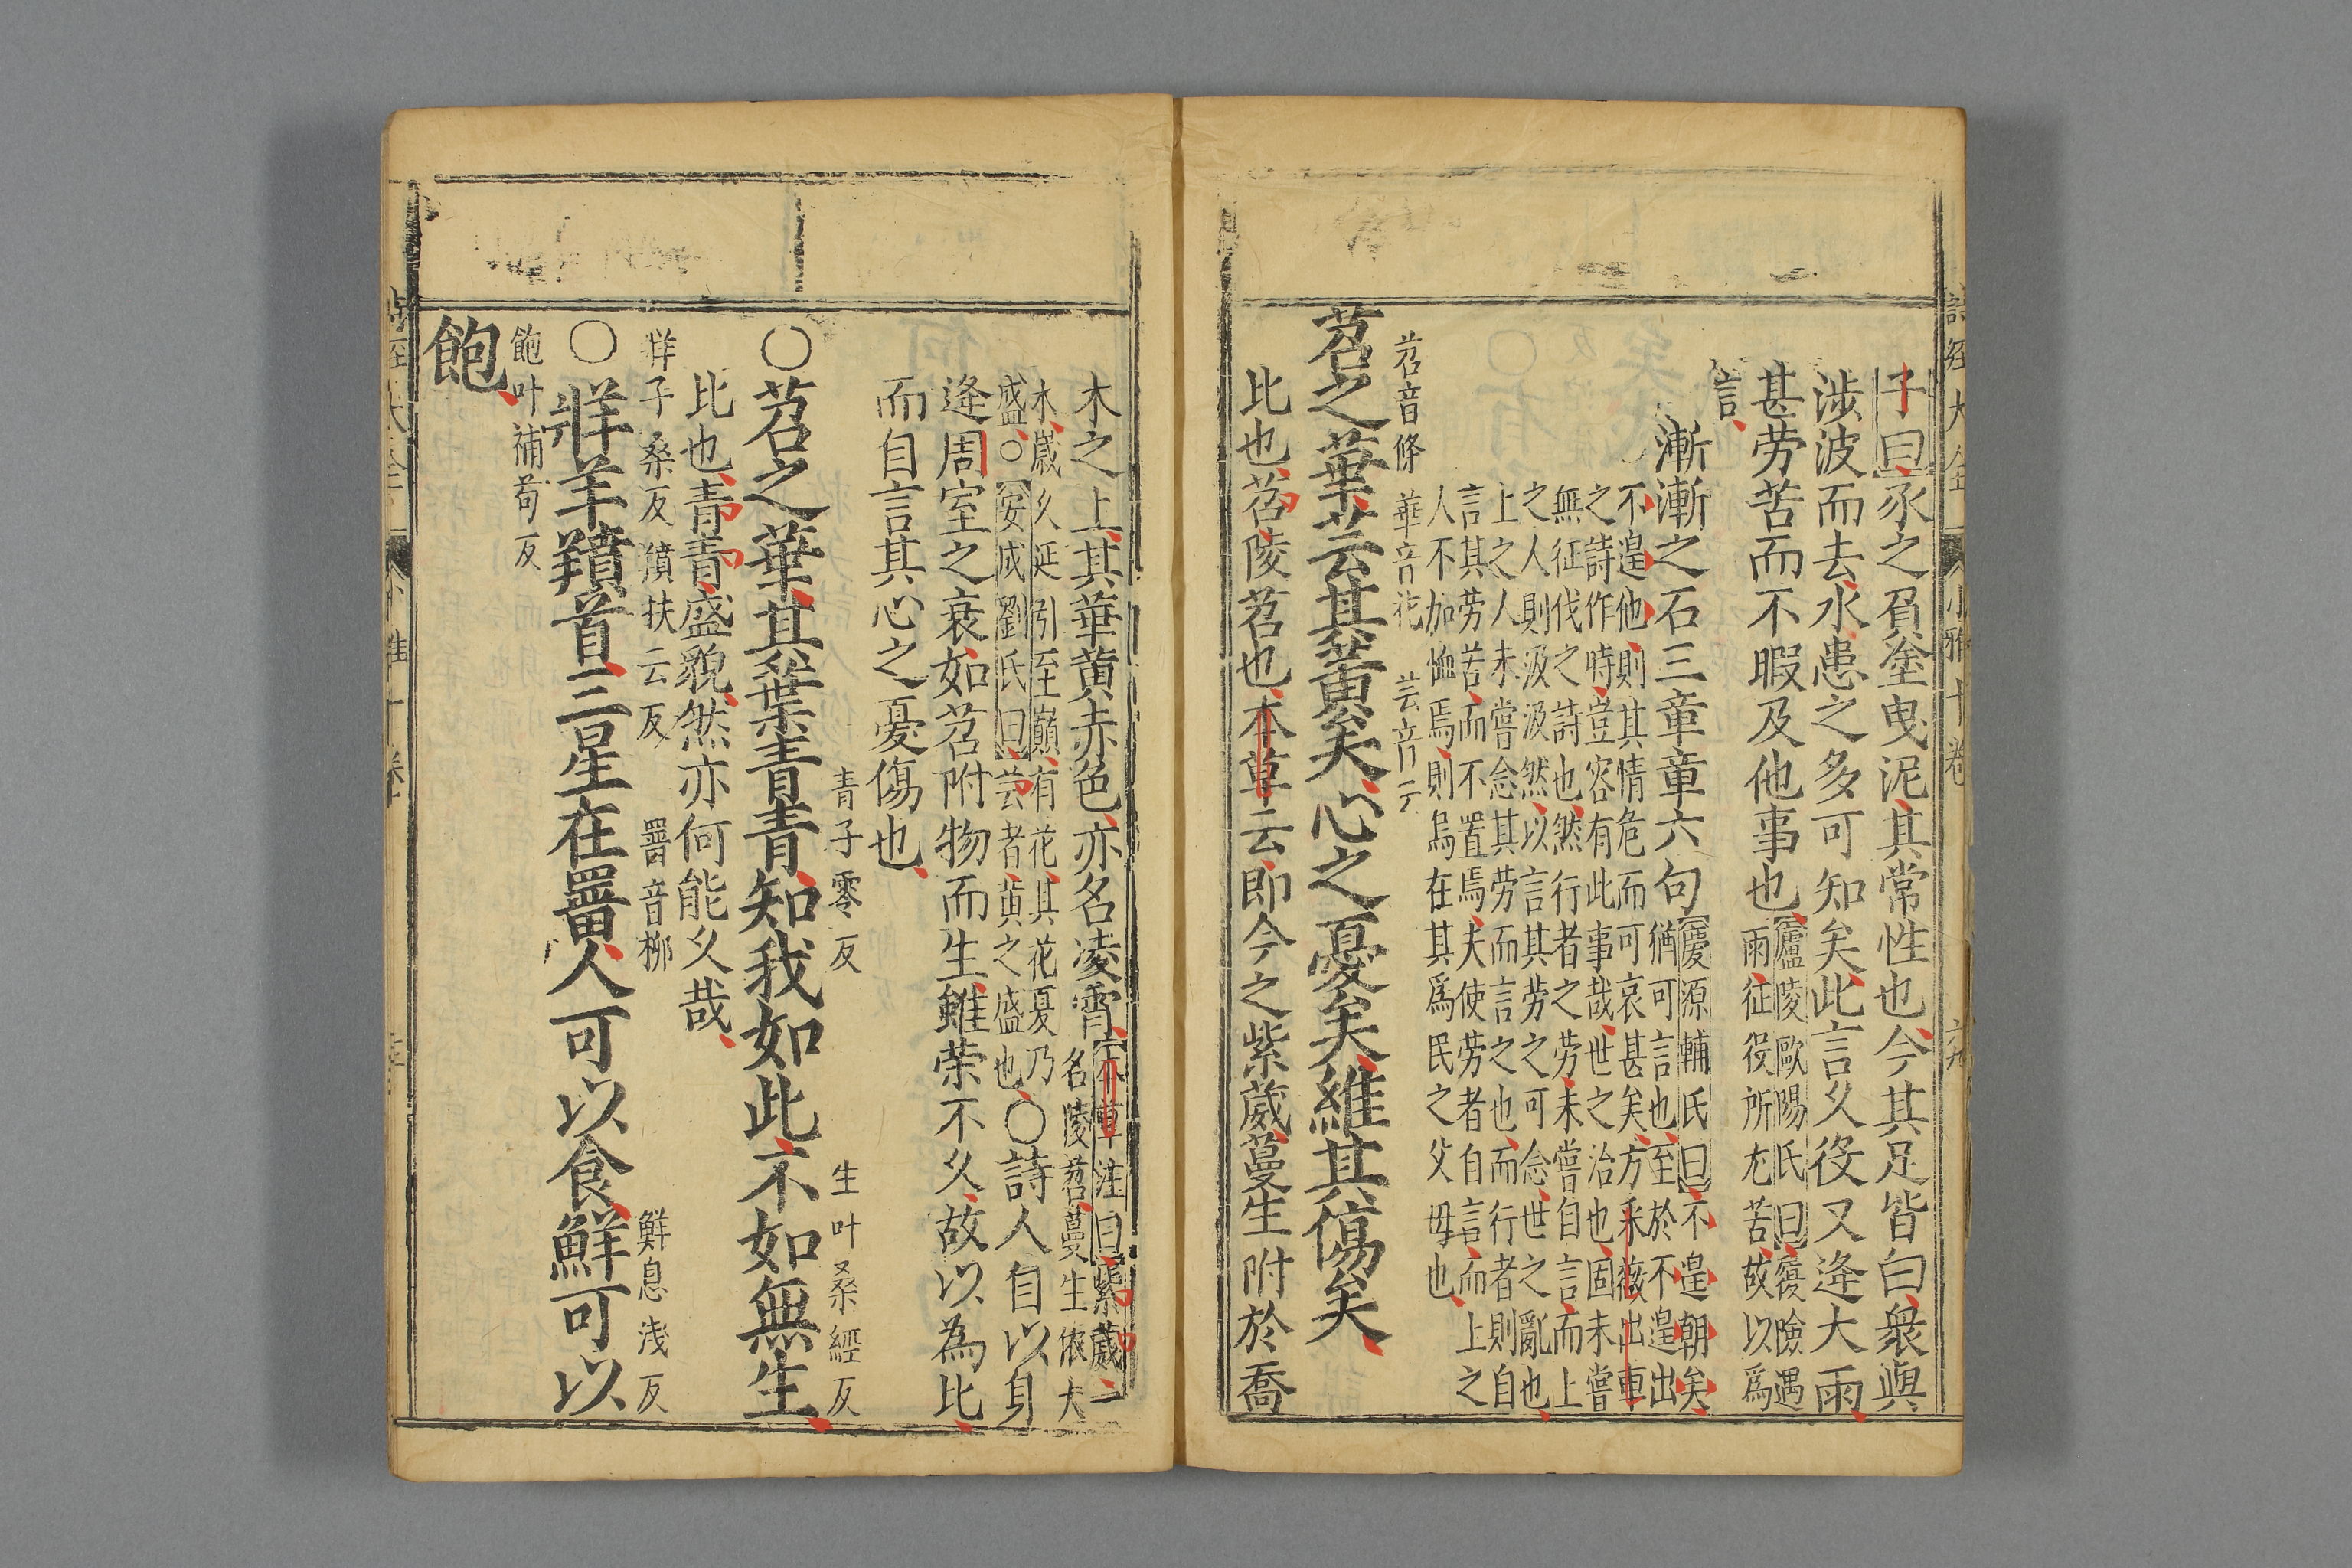 子曰豕之負塗曳泥其常性也今其足皆白衆與
涉波而去水患之多可知矣此言久役又逢大雨
甚勞苦而不暇及他事也廬陵歐陽氏曰履險遇
雨征役所尤苦故以爲
言
漸漸之石三章章六句慶源輔氏曰不遑朝矣
猶可言也至於不遑出
不遑他則其情危而可哀甚矣方采薇出車
之詩作時豈容有此事哉世之治也固未嘗
無征伐之詩也然行者之勞未嘗自言而上
之人則汲汲然以言其勞之可念世之亂也
上之人未嘗念其勞而言之也而行者則自
言其勞苦而不置焉夫使勞者自言而上之
人不加恤焉則烏在其爲民之父母也
苕音條 華音花 芸音云
苕之華芸其黃矣心之憂矣維其傷矣
比也苕陵苕也本草云即今之紫葳蔓生附於喬
木之上其華黃赤色亦名凌霄本草注曰紫葳一
名陵苕蔓生依大
木歲久延引至巔有花其花夏乃
盛○安成劉氏曰芸者黃之盛也○詩人自以身
逢周室之衰如苕附物而生雖荣不久故以為比
而自言其心之憂傷也
青子零反 生叶桑經反
○苕之華其葉青青知我如此不如無生
比也青青盛貌然亦何能久哉
牂子桑反 羵扶云反 罶音柳 鮮息淺反
○牂羊羵首三星在罶人可以食鮮可以
飽叶補苟反
飽
詩經大全 小雅十卷